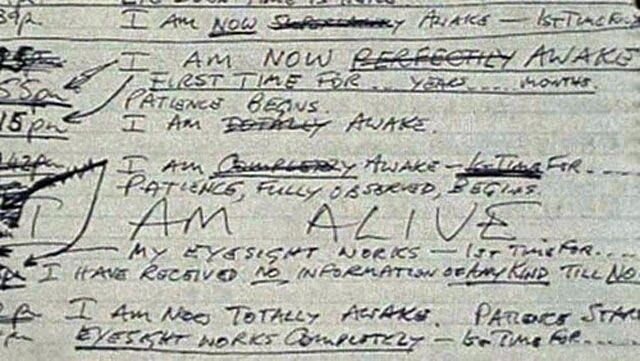 I AM NOW AWAKE — 1ST TIME
I AM NOW PERFECTLY AWAKE
55pm FIRST TIME FOR ... YEARS .... MONTHS
PATIENCE BEGINS.
15pm I AM TOTALLY AWAKE.
I AM COMPLETELY AWAKE — 1ST TIME FOR....
PATIENCE, FULLY OBSERVED, BEGINS.
I AM ALIVE
MY EYESIGHT WORKS — 1ST TIME FOR....
I HAVE RECEIVED NO INFORMATION OF ANY KIND TILL NO
I AM NOW TOTALLY AWAKE. PATIENCE STAR
EYESIGHT WORKS COMPLETELY — 1ST TIME FOR....